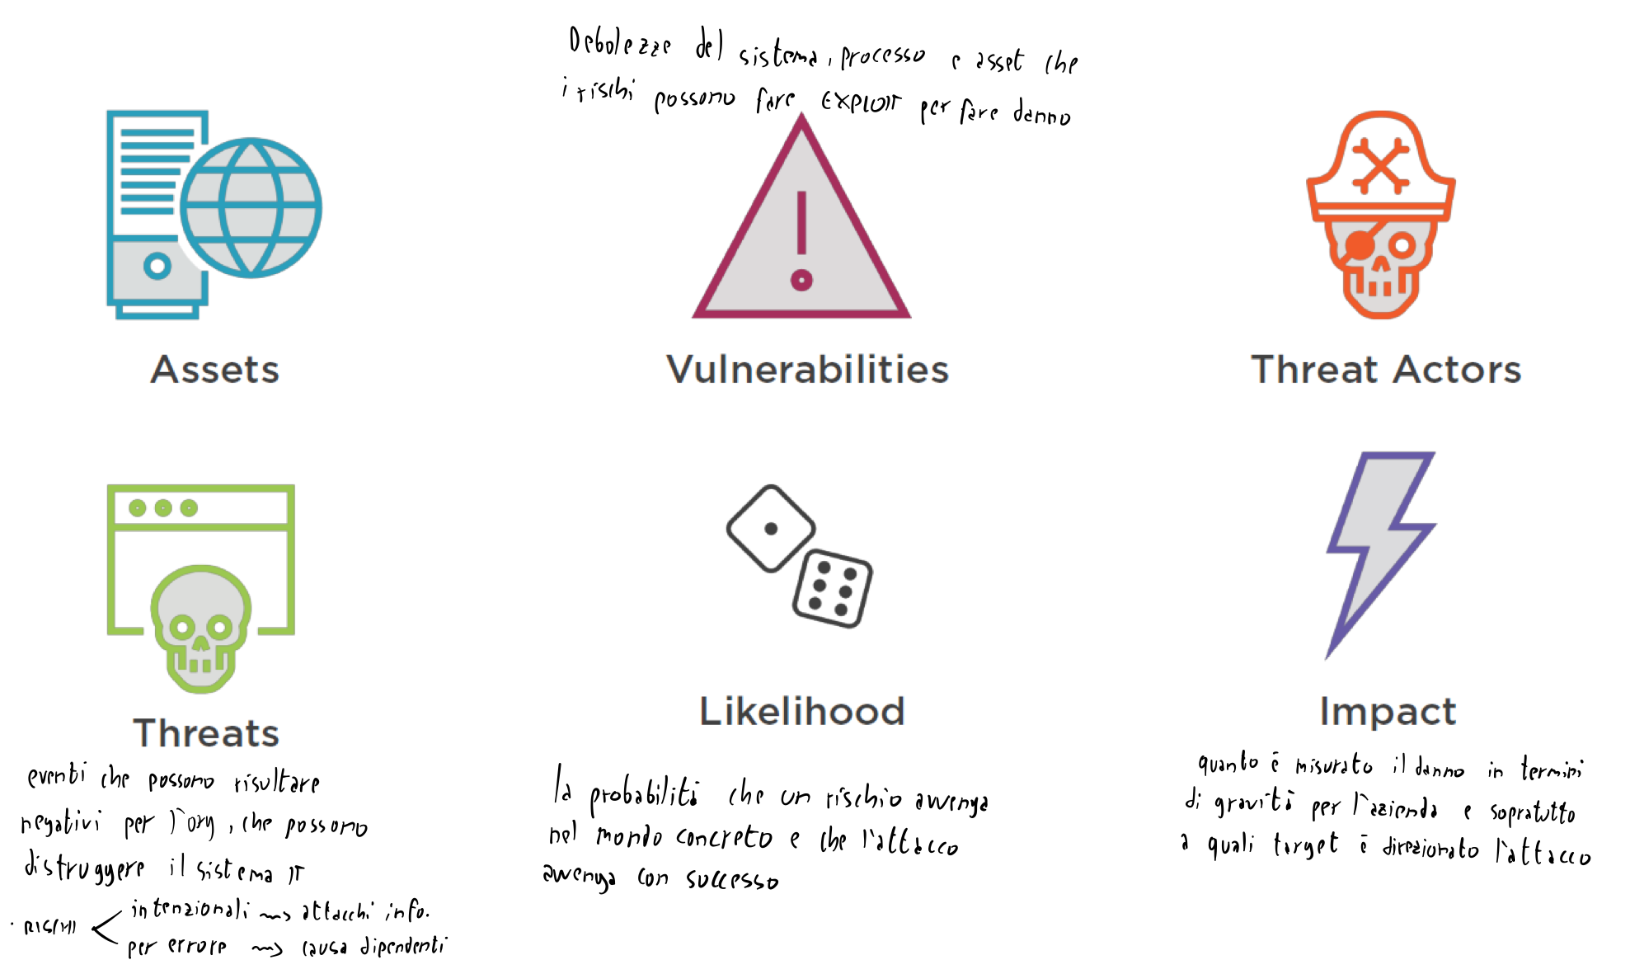 Debolezze del sistema, processo e asset che
i rischi possono fare EXPLOIT per fare danno
Assets
Vulnerabilities
Threat Actors
Threats
eventi che possono risultare
negativi per l'org, che possono
distruggere il sistema IT
· RISCHI
intenzionali ~~> attacchi info.
per errore ~~> causa dipendenti
Likelihood
la probabilità che un rischio avvenga
nel mondo concreto e che l'attacco
avvenga con successo
Impact
quanto è misurato il danno in termini
di gravità per l'azienda e sopratutto
a quali target è direzionato l'attacco